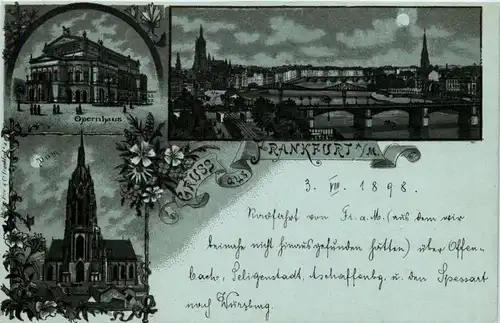 Opernhaus
Dom
GRUSS AUS FRANKFURT A/M
3. VII. 1898.
Radfahrt von Fr. a. M. (aus dem wir
beinahe nicht hinausgefunden hätten) über Offen-
bach, Seligenstadt, Aschaffenbg. u. den Spessart
nach Würzburg.